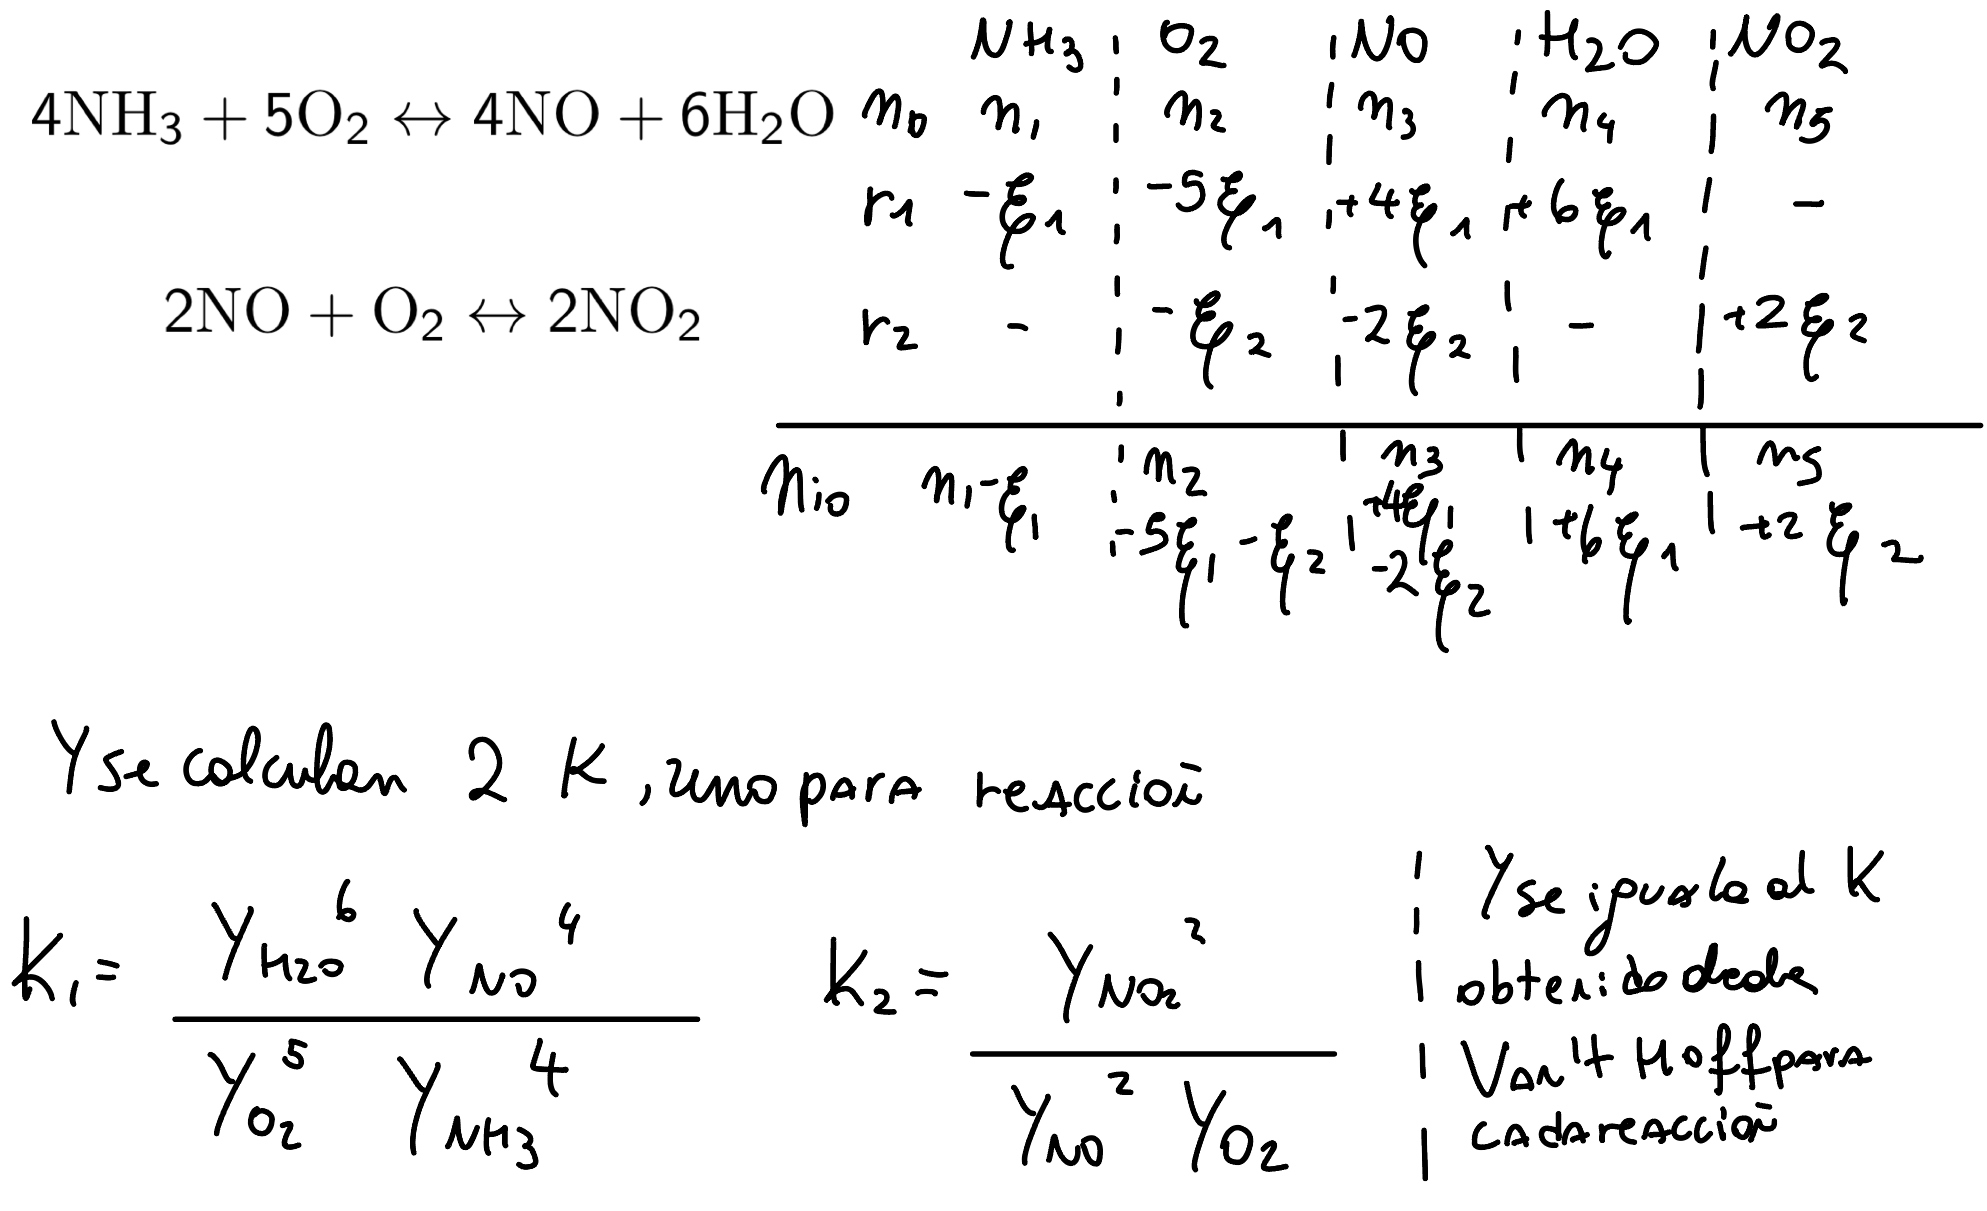 NH3 | O2 | NO | H2O | NO2
4NH₃ + 5O₂ ↔ 4NO + 6H₂O n0 n1 n2 n3 n4 n5
r1 -ξ1 -5ξ1 +4ξ1 +6ξ1 -
2NO + O₂ ↔ 2NO₂ r2 - -ξ2 -2ξ2 - +2ξ2
nio n1-ξ1 n2 -5ξ1 -ξ2 n3 +4ξ1 -2ξ2 n4 +6ξ1 n5 +2ξ2
Y se calculan 2 K, uno para reacción
K1 = YH2O^6 YNO^4 / YO2^5 YNH3^4
K2 = YNO2^2 / YNO^2 YO2
Y se iguala al K
obtenido desde
Van't Hoff para
cada reacción